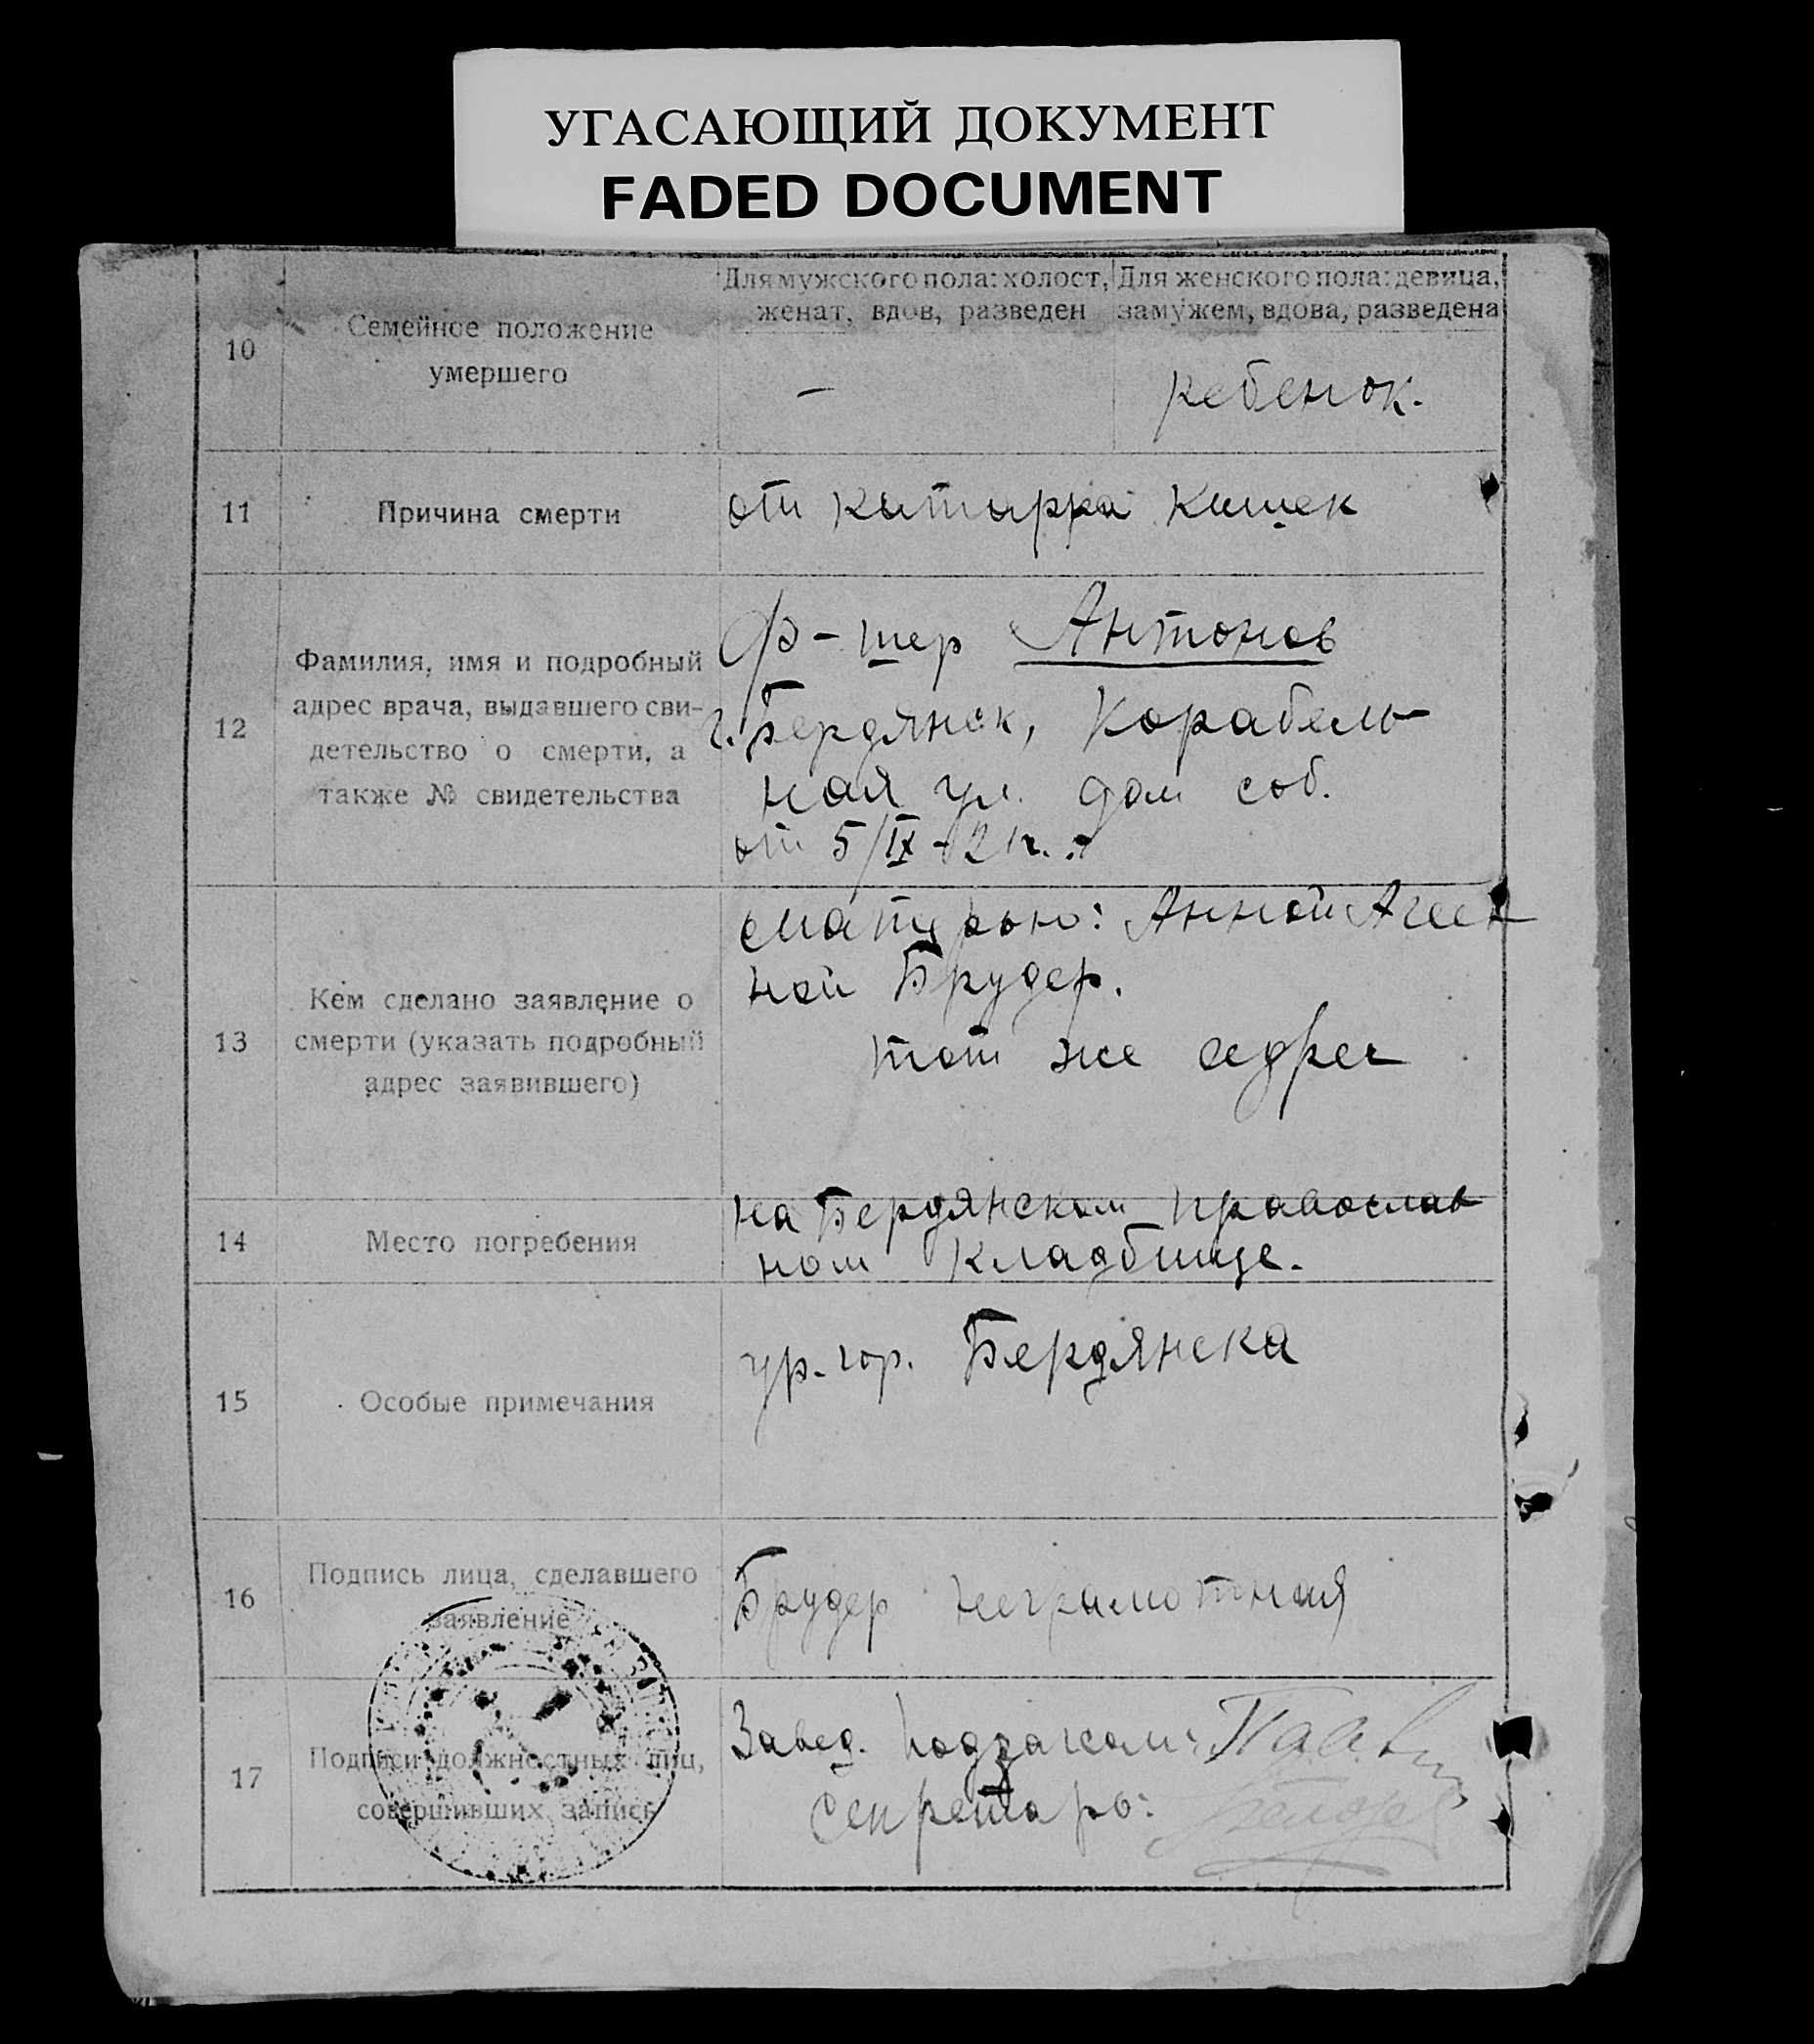 УГАСАЮЩИЙ ДОКУМЕНТ
FADED DOCUMENT
10
Семейное положение
умершего
Для мужского пола: холост,
женат, вдов, разведен
Для женского пола: девица,
замужем, вдова, разведена
—
ребенок.
11
Причина смерти
от катарра кишек
12
Фамилия, имя и подробный
адрес врача, выдавшего сви-
детельство о смерти, а
также № свидетельства
Ф-шер Антонов
г. Бердянск, Корабель-
ная ул. дом соб.
от 5/IX-21г.
13
Кем сделано заявление о
смерти (указать подробный
адрес заявившего)
матерью: Анной
ной Брудер.
тот же адрес
14
Место погребения
на Бердянском православ
ном кладбище.
15
Особые примечания
ур. гор. Бердянска
16
Подпись лица, сделавшего
заявление
Брудер неграмотная
17
Подписи должностных лиц,
совершивших запись
Завед. подзагсом:
Секретарь: